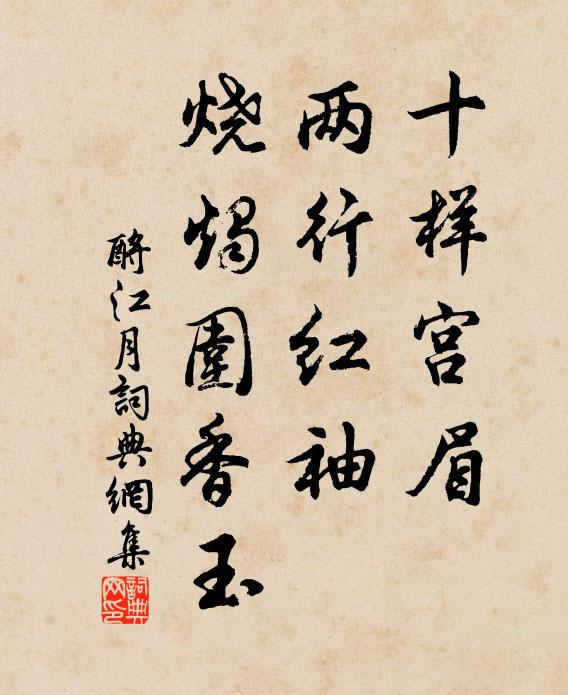 十样宫眉
两行红袖
烧烛围香玉
酹江月詞典網集
詞典
网印